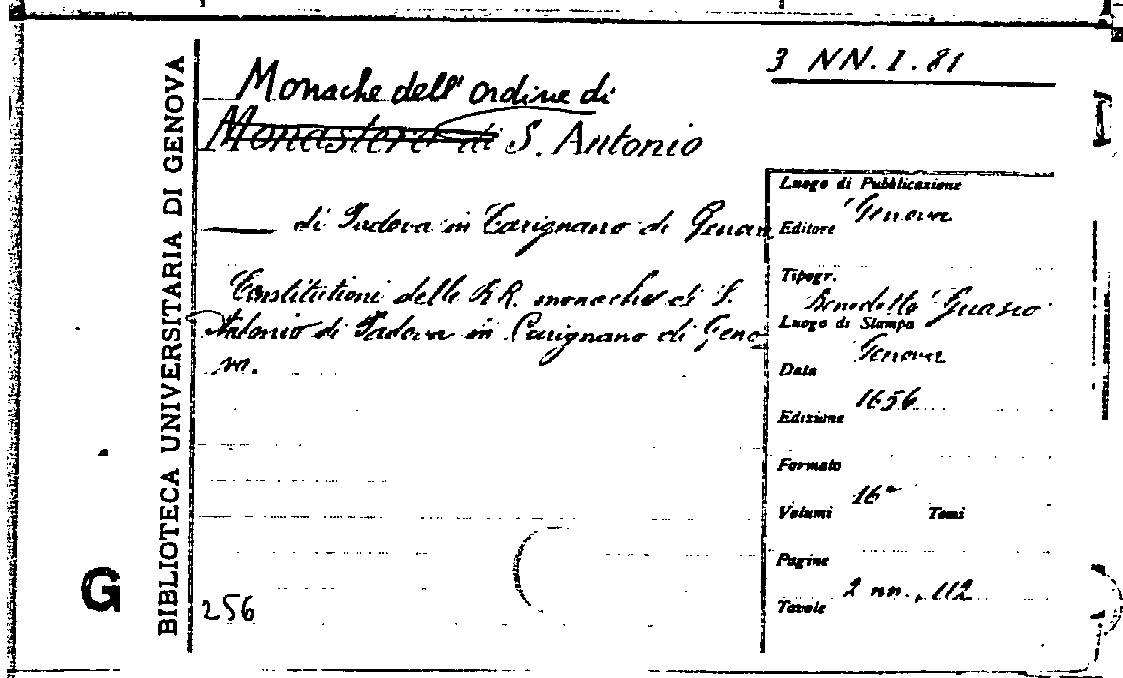 3 NN. I. 81
Monache dell'ordine di
Monastero di S. Antonio
di Padova in Carignano di Genova
Constitutioni delle RR. monache di S.
Antonio di Padova in Carignano di Geno-
va.
256
BIBLIOTECA UNIVERSITARIA DI GENOVA
G
Luogo di Pubblicazione
Genova
Editore
Tipogr.
Benedetto Guasco
Luogo di Stampa
Genova
Data
1656
Edizione
Formato
16°
Volumi Tomi
Pagine
2 nn., 112
Tavole